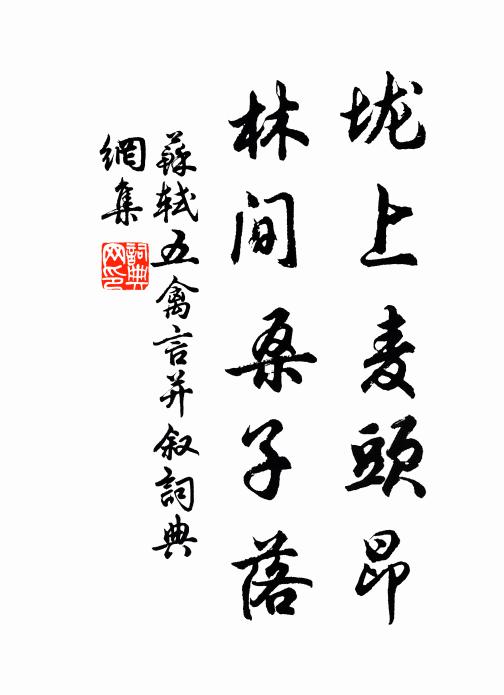 垅上麦頭昂
林间桑子落
蘇轼五禽言并叙詞典
網集
詞典网印